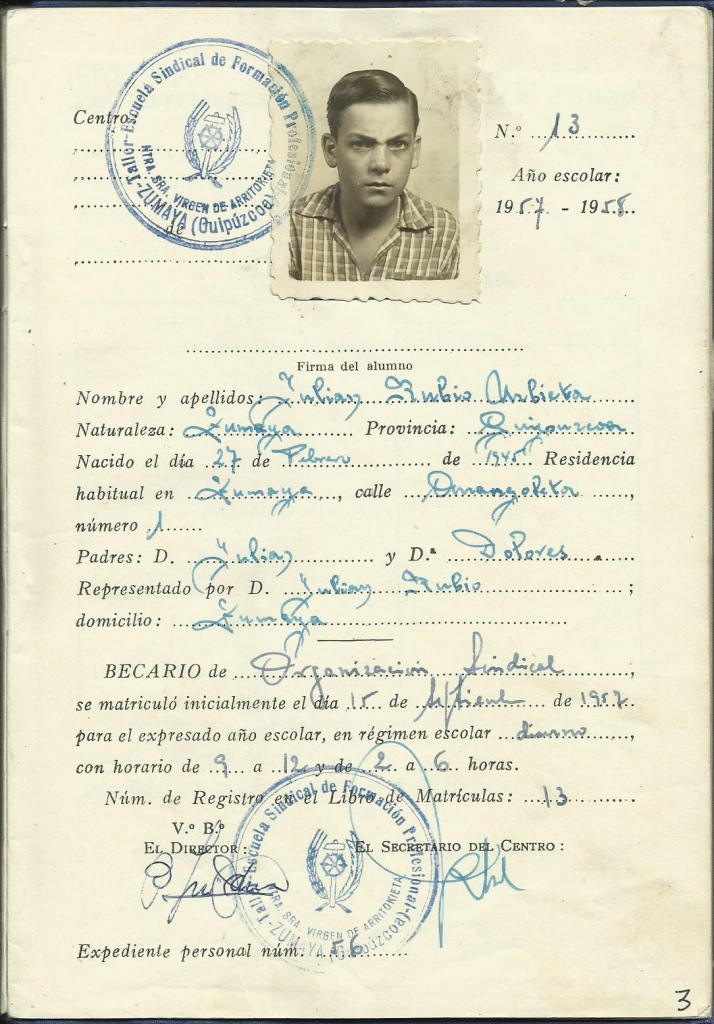 Centro
Taller-Escuela Sindical de Formación Profesional
NTRA. SRA. VIRGEN DE ARRITOKIETA
ZUMAYA (Guipúzcoa)
de
N.º 13
Año escolar:
1957 - 1958
Firma del alumno
Nombre y apellidos: Julian Rubio Urbieta
Naturaleza: Zumaya Provincia: Guipuzcoa
Nacido el día 27 de Febrero de 1945 Residencia
habitual en Zumaya, calle
número 1
Padres: D. Julian y D.ª Dolores
Representado por D. Julian Rubio;
domicilio: Zumaya
BECARIO de Organizacion Sindical,
se matriculó inicialmente el día 15 de de 1957
para el expresado año escolar, en régimen escolar diurno,
con horario de 9 a 12 y de 2 a 6 horas.
Núm. de Registro en el Libro de Matrículas: 13
V.º B.º
EL DIRECTOR: EL SECRETARIO DEL CENTRO:
Taller-Escuela Sindical de Formación Profesional
NTRA. SRA. VIRGEN DE ARRITOKIETA
ZUMAYA (Guipúzcoa)
Expediente personal núm. 56
3